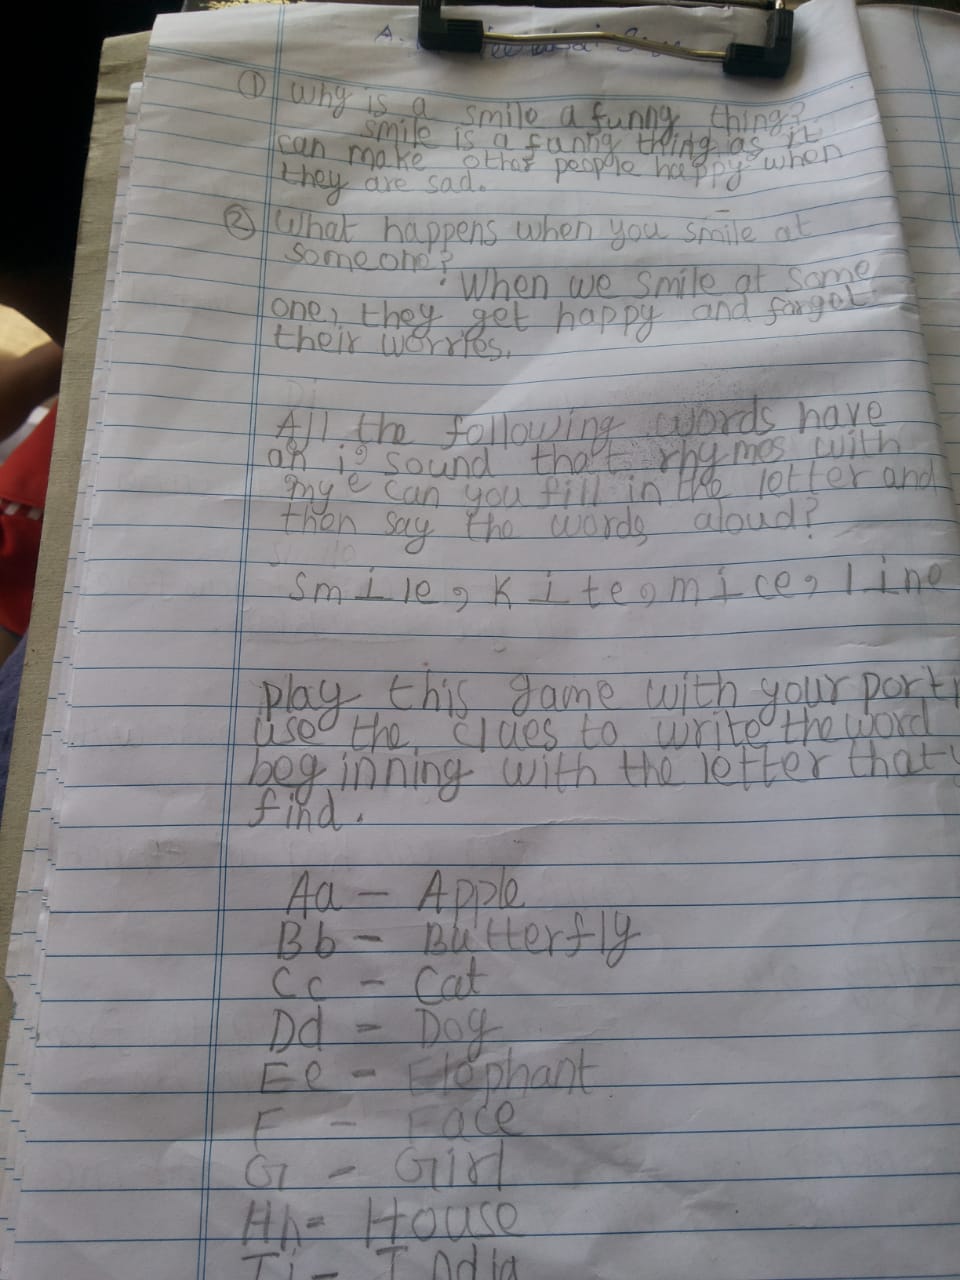 A.
① Why is a smile a funny thing?
smile is a funny thing as it
can make other people happy when
they are sad.
② What happens when you smile at
someone?
When we smile at some
one, they get happy and forget
their worries.
All the following words have
an i sound that rhymes with
my can you fill in the letter and
then say the words aloud?
Smile, Kite, mice, line
play this game with your
use the clues to write the word
beginning with the letter that
find.
Aa - Apple
Bb - Butterfly
Cc - Cat
Dd - Dog
Ee - Elephant
F - Face
G - Girl
Hh - House
Ii - India